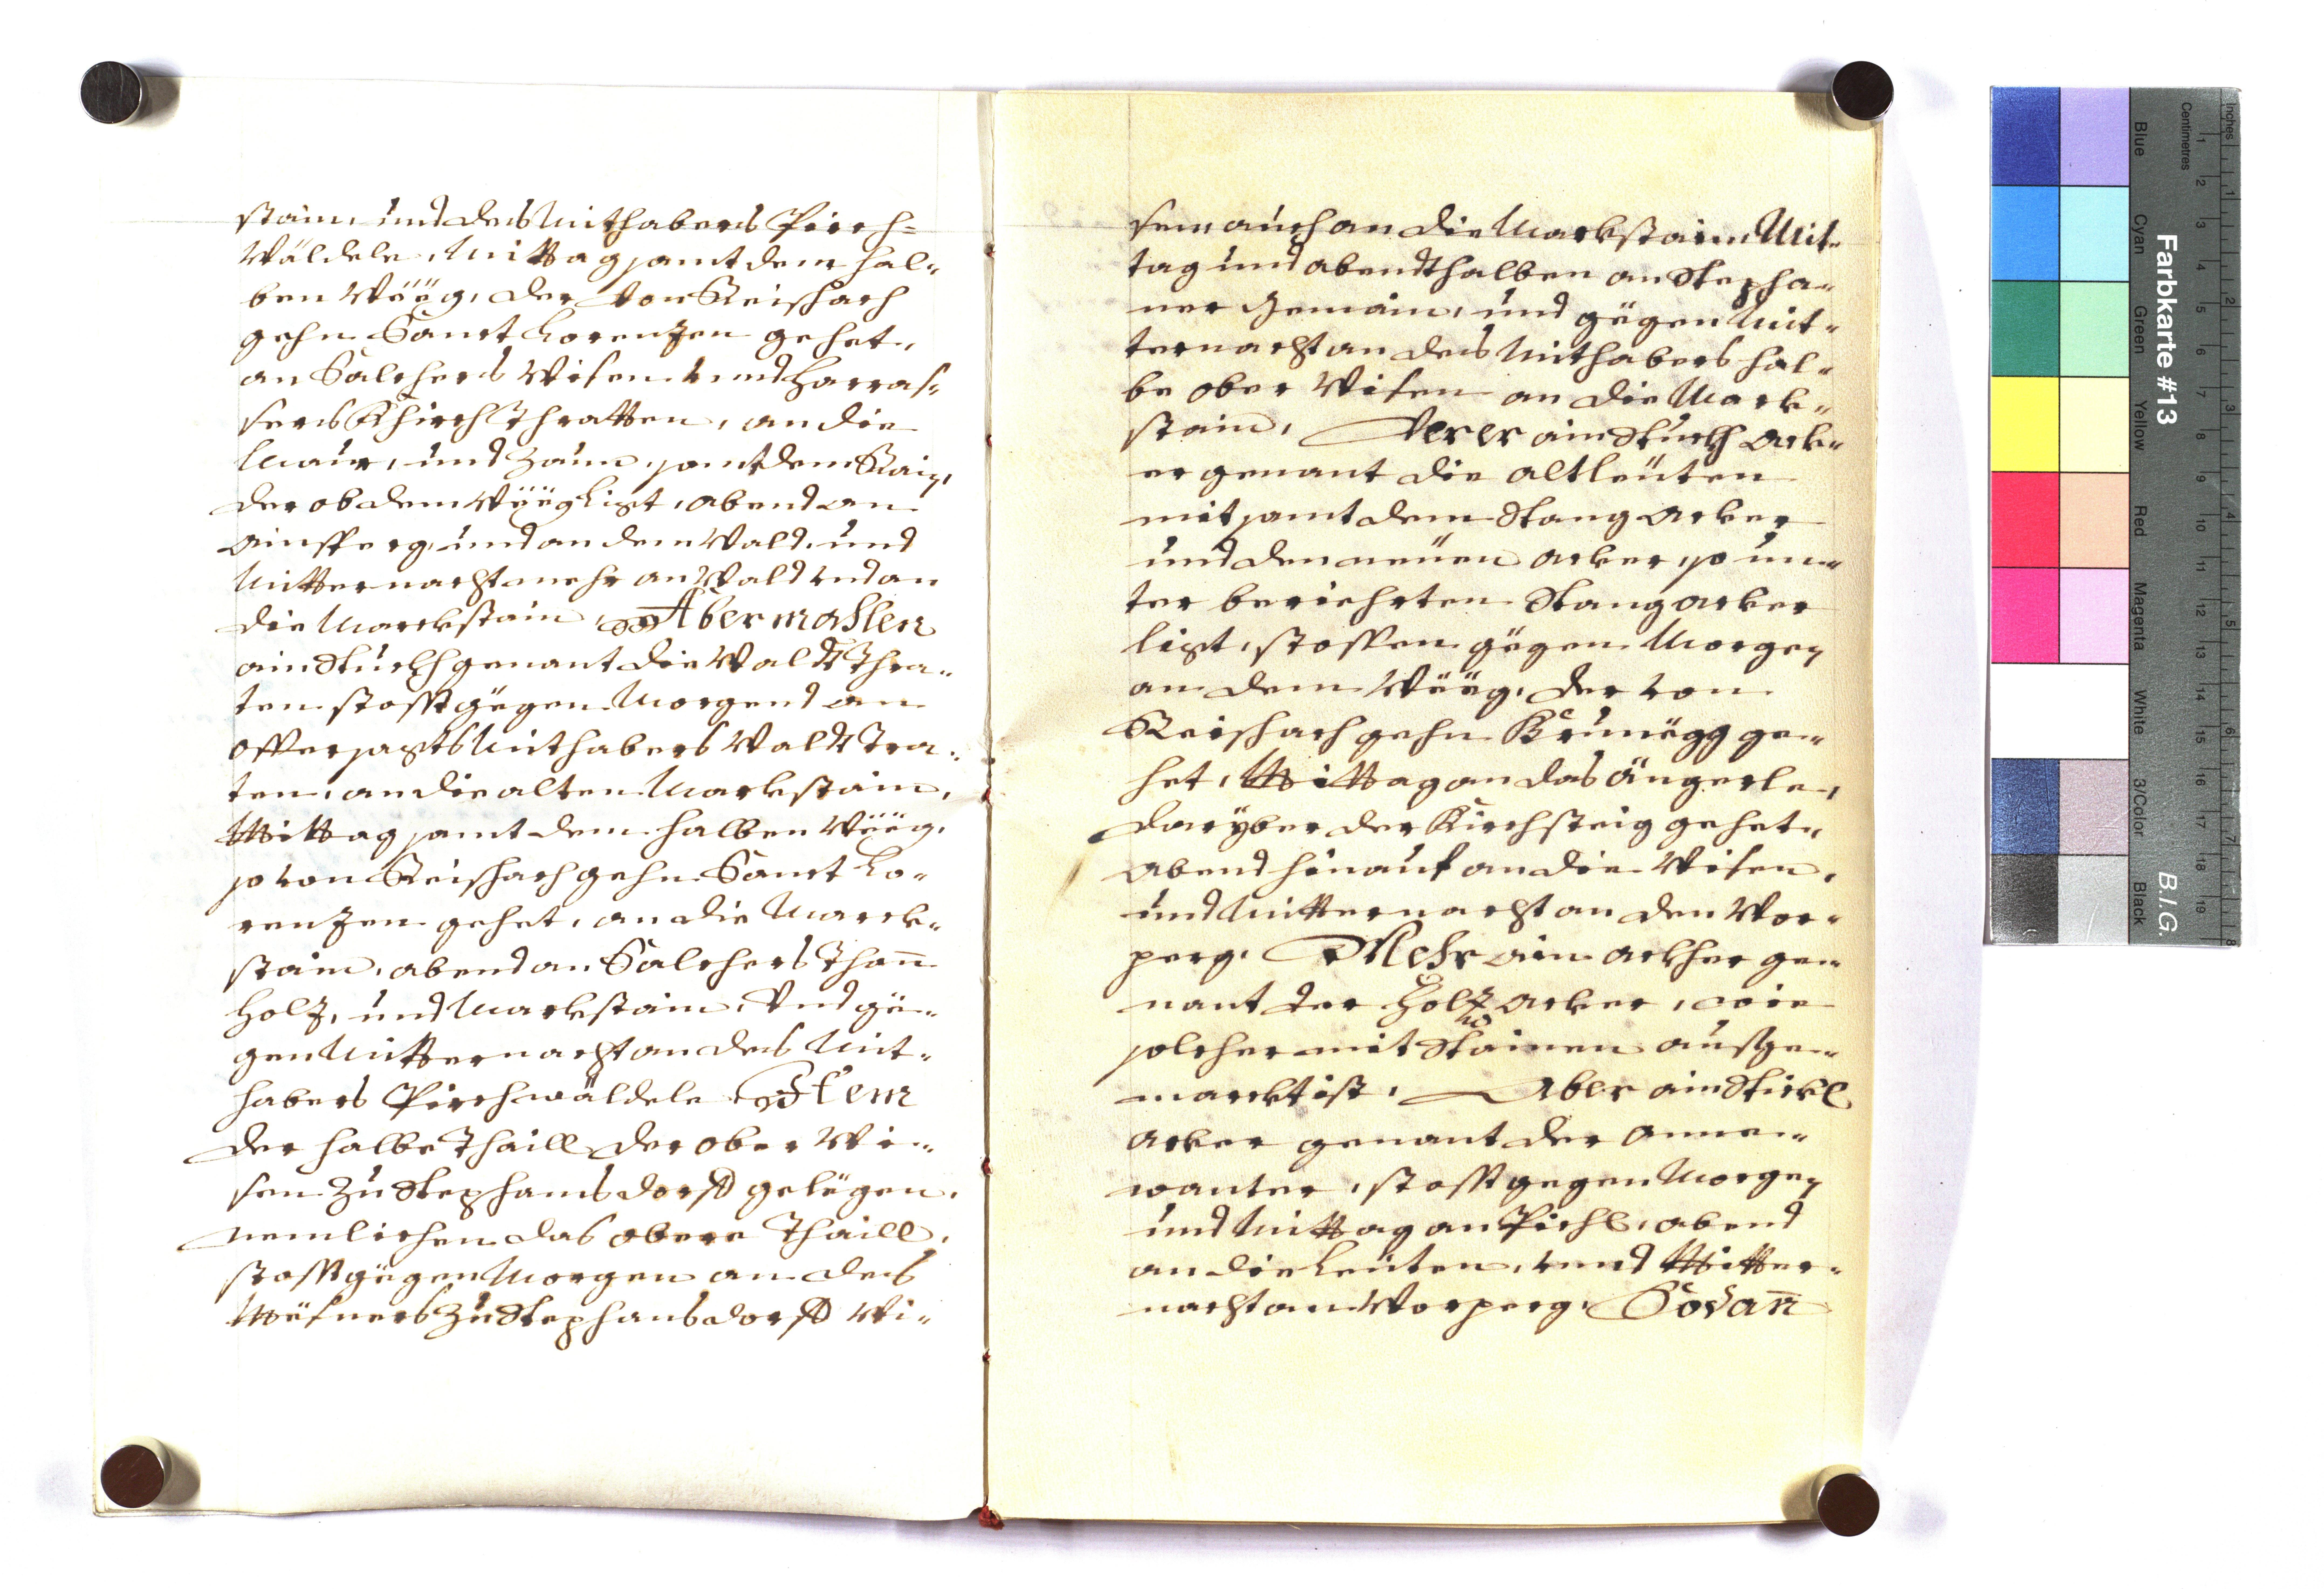 stain, und des Mithabers Pirch-
Wäldele, Mittag samt dem hal-
ben Wëëg, der von Reischach
gehn Sanct Lorenzen gehet,
an Salchers Wisen vnd Harras-
sers Khirch Thratten, an die
Maur, und Zaun, samt dem Rain,
der ob dem Wëëg ligt, abend an
Ainsperg, und an den Wald, und
Mitternacht mehr an Wald vnd an
die Marckstain, Abermahlen
ain Stuckh genant die Waldt Thra-
ten stosst gëgen Morgend an
offtersagts Mithabers Waldt Tra-
ten, an die alten Markstain,
Mittag samt dem halben Wëëg,
so von Reischach gehn Sanct Lo-
renzen gehet, an die Marck-
stain, abend an Salchers Than̄
Holz, und Markstain, Vnd gë-
gen Mitternacht an des Mit-
habers Pirchwäldele Item
der halbe Thaill der ober Wi-
sen zu Stephansdorff gelëgen,
nemlichen das obere Thaill,
stosst gëgen Morgen an des
Mësners zu Stephansdorff Wi-
sen, auch an die Markstain, Mit-
tag und abendthalben an Stepha-
ner Gemain, und gëgen Mit-
ternacht an des Mithabers hal-
be ober Wisen an die Mark-
stain, Verer ain Stuckh Ack-
er genant die altleüten
mit samt dem Stang Acker
und den neüen Acker, so un-
ter beriehrten Stangacker
ligt, stossen gëgen Morgen
an dem Wëëg, der von
Reischach gehn Brunëgg ge-
het, Mittag an das Ängerle,
daryber der Kirchsteig gehet,
Abend hinauf an die Wisen,
und Mitternacht an den Vor-
perg. Mehr ain Ackher ge-
nant der Holz Acker, wie
solcher mit Stainen ausge-
marckt ist, Aber ain Stickl
Acker genant der Anne-
wanter, stosst gegen Morgen
und Mittag an Pichl, abend
an die Leüten, vnd Mitter-
nacht an Vorperg, Sodan̄